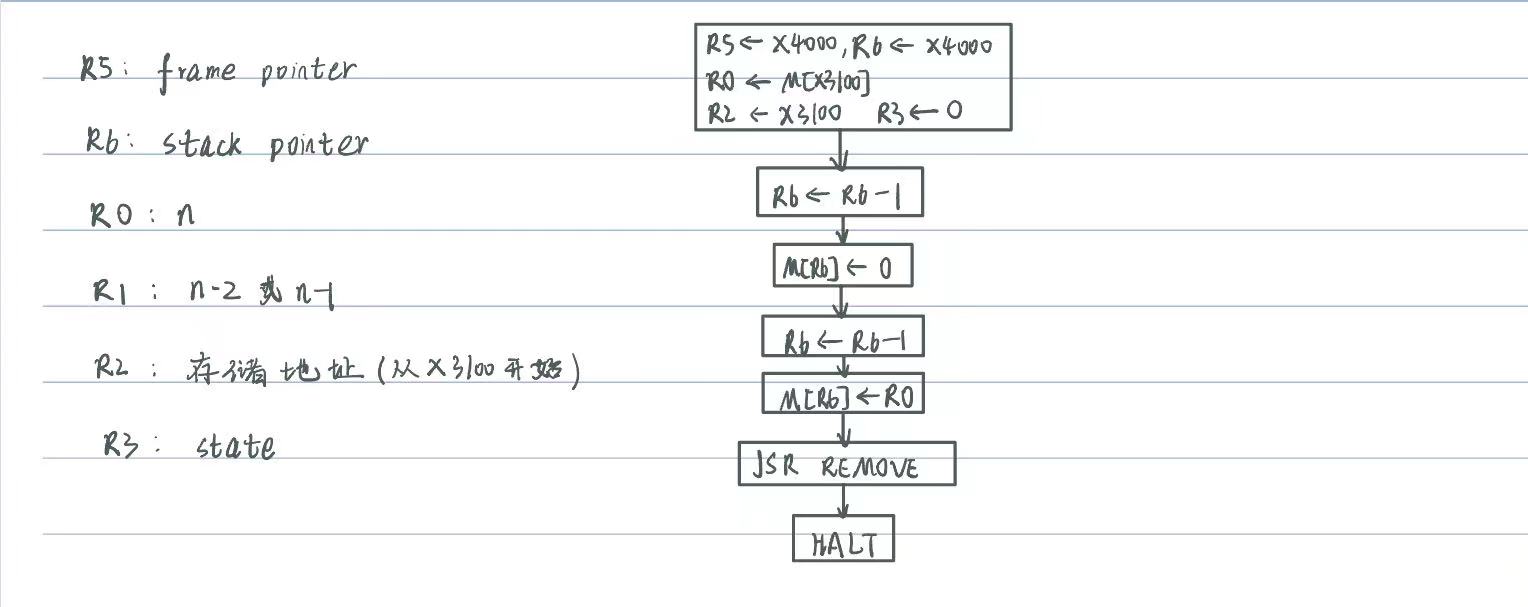 R5: frame pointer
R6: stack pointer
R0: n
R1: n-2 或 n-1
R2: 存储地址(从x3100开始)
R3: state
R5 ← x4000, R6 ← x4000
R0 ← M[x3100]
R2 ← x3100 R3 ← 0
R6 ← R6-1
M[R6] ← 0
R6 ← R6-1
M[R6] ← R0
JSR REMOVE
HALT